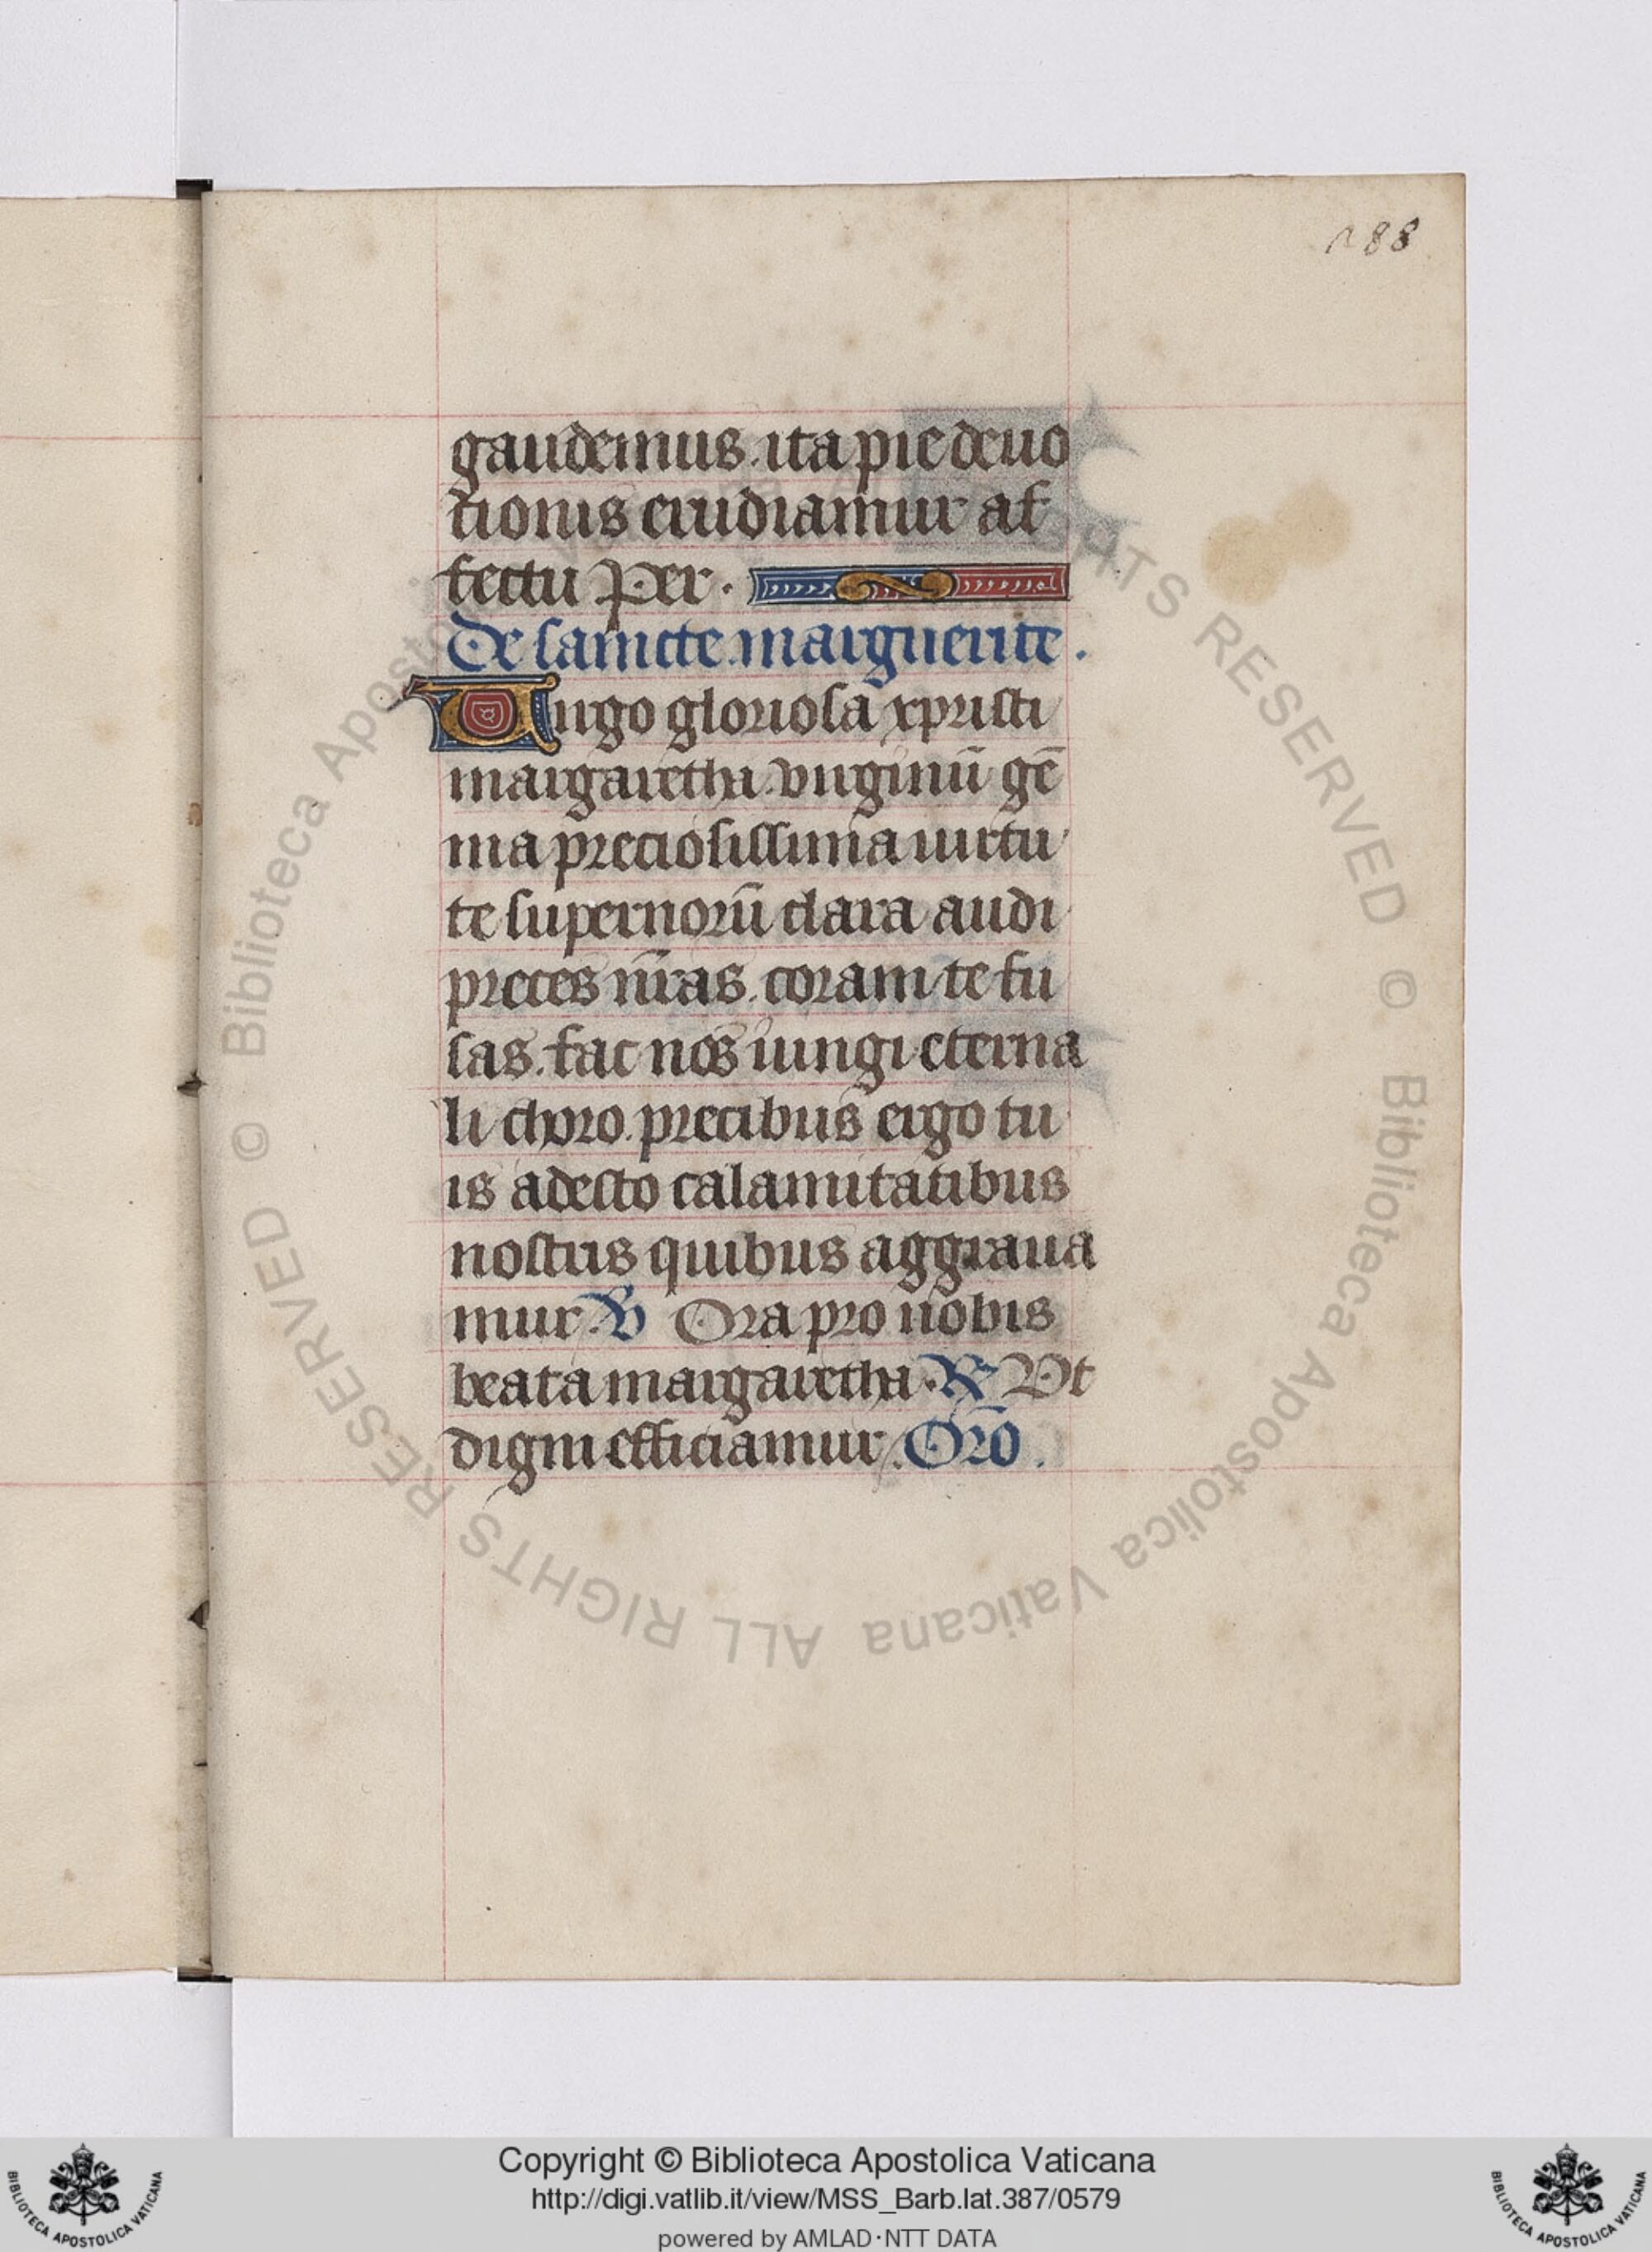 288
gaudemus. ita pie deuo
tionis erudiamur af
fectu Per.
De saincte marguerite.
Uirgo gloriosa xpristi
margaretha. virginū gē
ma preciosissima uirtu
te supernorū clara audi
preces nr̄as. coram te fu
sas. fac nos iungi eterna
li choro. precibus ergo tu
is adesto calamitatibus
nostris quibus aggraua
mur. ℣ Ora pro nobis
beata margaretha. ℟ Vt
digni efficiamur. Orō.
© Biblioteca Apostolica Vaticana ALL RIGHTS RESERVED © Biblioteca Apostolica Vaticana ALL RIGHTS RESERVED
Copyright © Biblioteca Apostolica Vaticana
http://digi.vatlib.it/view/MSS_Barb.lat.387/0579
powered by AMLAD·NTT DATA
BIBLIOTECA APOSTOLICA VATICANA
BIBLIOTECA APOSTOLICA VATICANA